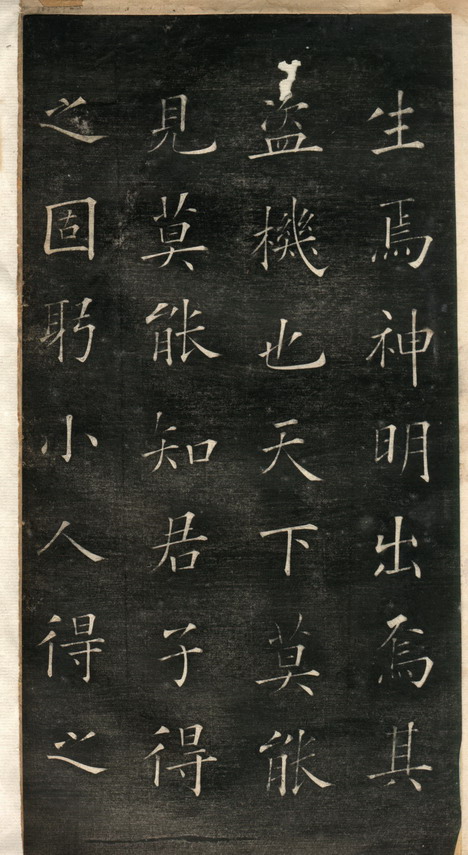 生焉神明出焉其
盗機也天下莫能
見莫能知君子得
之固躬小人得之